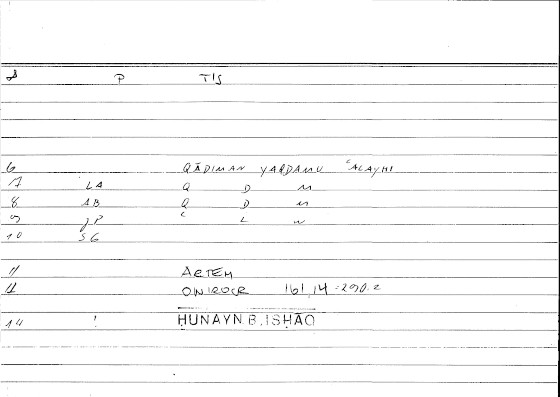 8 P TIS
6 QĀDIMAN YAQDAMU ʿALAYHI
7 LA Q D M
8 AB Q D M
9 JP ʿ L W
10 SG
11 ARTEM
12 ONIROCR 161,14 = 290.2
14 ! ḤUNAYN B. ISḤĀQ